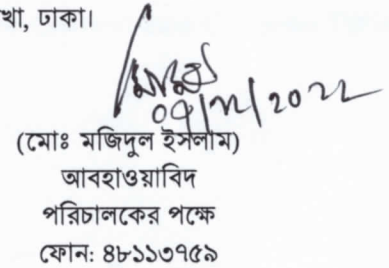 খা, ঢাকা।
(মোঃ মজিদুল ইসলাম)
আবহাওয়াবিদ
পরিচালকের পক্ষে
ফোন: ৪৮১১৩৭৫৯